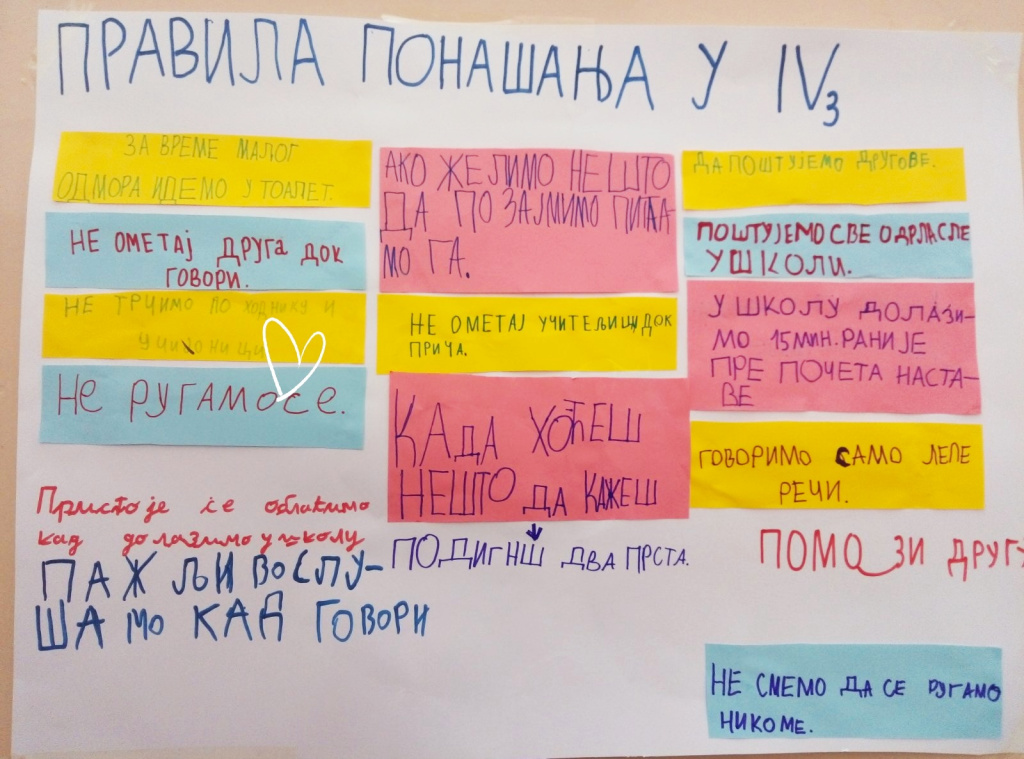 ПРАВИЛА ПОНАШАЊА У IV3
ЗА ВРЕМЕ МАЛОГ
ОДМОРА ИДЕМО У ТОАЛЕТ.
НЕ ОМЕТАЈ ДРУГА ДОК
ГОВОРИ.
НЕ ТРЧИМО ПО ХОДНИКУ И
УЧИОНИЦИ
НЕ РУГАМО СЕ.
Пристоје се облачимо
кад долазимо у школу
ПАЖЉИВО СЛУ-
ШАМО КАД ГОВОРИ
АКО ЖЕЛИМО НЕШТО
ДА ПОЗАЈМИМО ПИТА-
МО ГА.
НЕ ОМЕТАЈ УЧИТЕЉИЦУ ДОК
ПРИЧА.
КАДА ХОЋЕШ
НЕШТО ДА КАЖЕШ
ПОДИГНШ ДВА ПРСТА.
ДА ПОШТУЈЕМО ДРУГОВЕ.
ПОШТУЈЕМО СВЕ ОДРЛАСЛЕ
У ШКОЛИ.
У ШКОЛУ ДОЛАЗИ-
МО 15 МИН. РАНИЈЕ
ПРЕ ПОЧЕТА НАСТА-
ВЕ
ГОВОРИМО САМО ЛЕПЕ
РЕЧИ.
ПОМОЗИ ДРУГУ
НЕ СМЕМО ДА СЕ РУГАМО
НИКОМЕ.